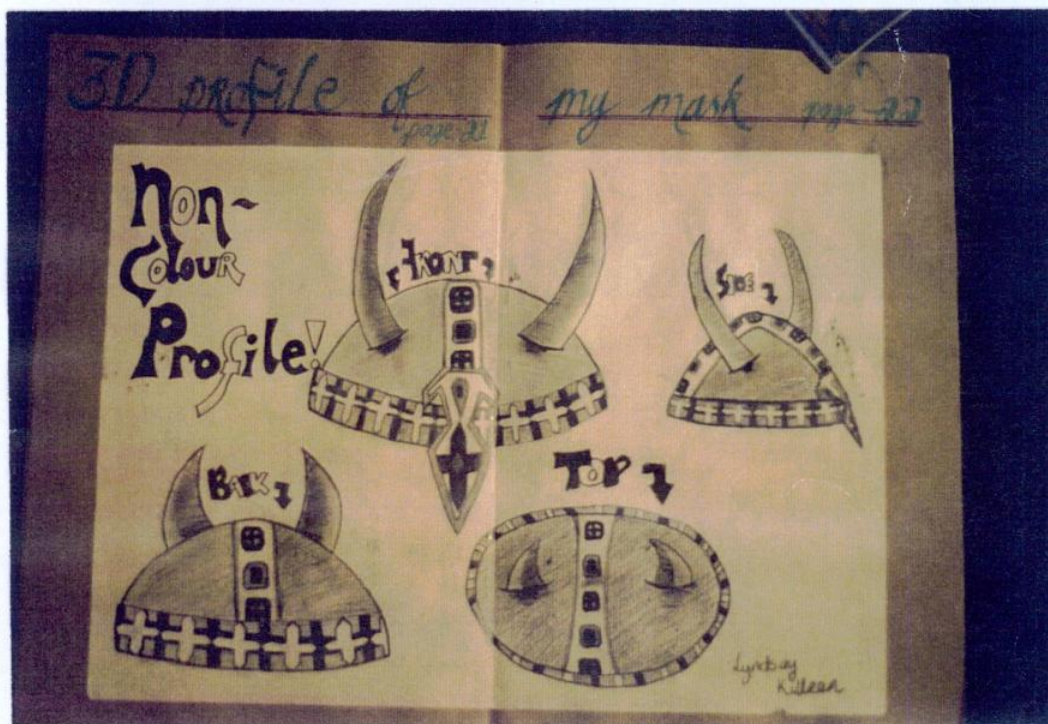 3D profile of my mask
page 21 page 22
Non-
Colour
Profile!
Front
Side
Back
Top
Lyndsay
Killeen